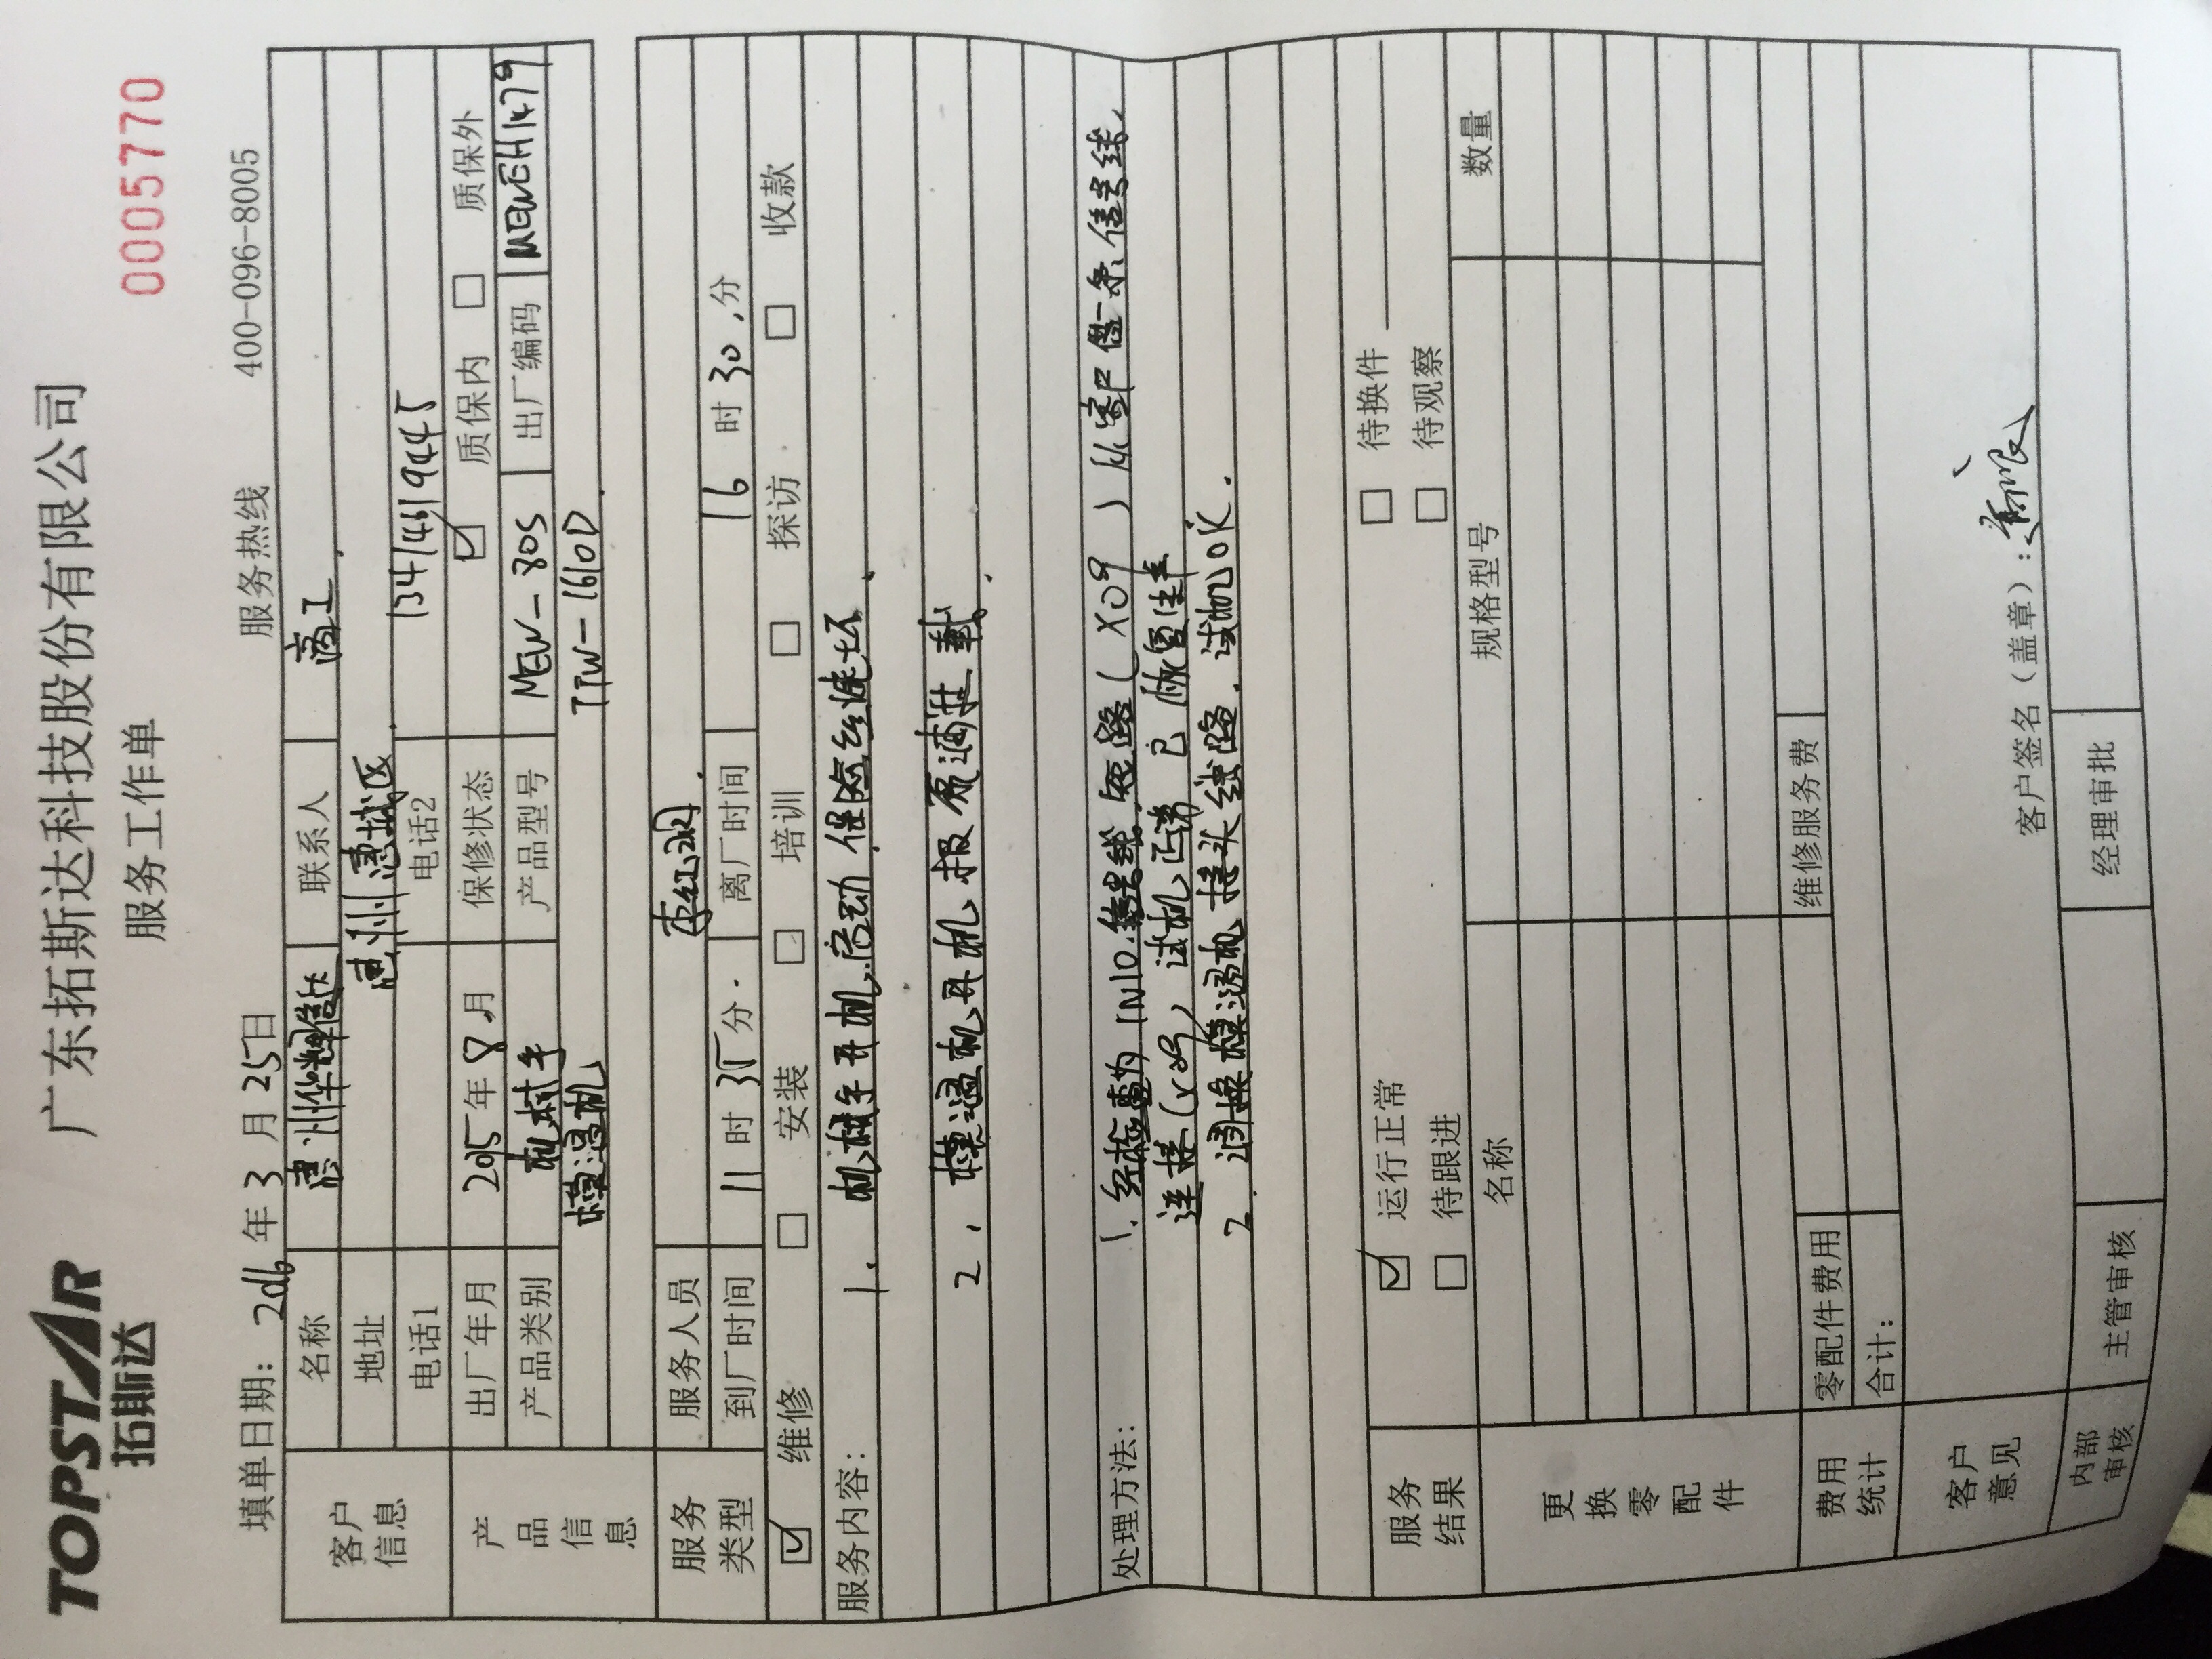 TOPSTAR
拓斯达
广东拓斯达科技股份有限公司
服务工作单
0005770
填单日期：2016年3月25日 服务热线 400-096-8005
客户信息
名称 惠州华辉信达 联系人 高工
地址 惠州惠城区
电话1 电话2 13414619445
产品信息
出厂年月 2015年8月 保修状态 ☑ 质保内 □ 质保外
产品类别 机械手 产品型号 MEW-80S 出厂编码 MEWEH1479
模温机 TTW-1610D
服务类型
服务人员
到厂时间 11时35分 离厂时间 16时30分
☑ 维修 □ 安装 □ 培训 □ 探访 □ 收款
服务内容：
1. 机械手开机启动保险丝烧坏
2. 模温机开机报泵浦过载
处理方法：
1. 经检查为IN10信号线短路（X09）从客户借一条信号线
连接（X09）试机正常已恢复生产
2. 调换模温机接头线路．试机OK．
服务结果
☑ 运行正常 □ 待换件
□ 待跟进 □ 待观察
更换零配件
名称 规格型号 数量
费用统计
零配件费用 维修服务费
合计：
客户意见
客户签名（盖章）：
内部审核
主管审核 经理审批